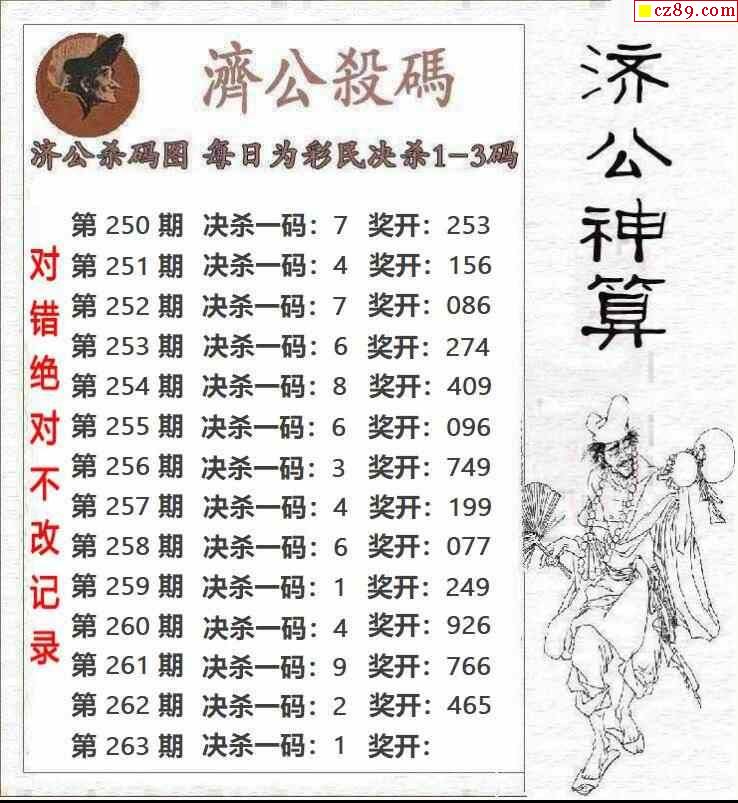 cz89.com
濟公殺碼
济公杀码图 每日为彩民决杀1-3码
第 250 期 决杀一码：7 奖开：253
第 251 期 决杀一码：4 奖开：156
第 252 期 决杀一码：7 奖开：086
第 253 期 决杀一码：6 奖开：274
第 254 期 决杀一码：8 奖开：409
第 255 期 决杀一码：6 奖开：096
第 256 期 决杀一码：3 奖开：749
第 257 期 决杀一码：4 奖开：199
第 258 期 决杀一码：6 奖开：077
第 259 期 决杀一码：1 奖开：249
第 260 期 决杀一码：4 奖开：926
第 261 期 决杀一码：9 奖开：766
第 262 期 决杀一码：2 奖开：465
第 263 期 决杀一码：1 奖开：
对错绝对不改记录
济公神算